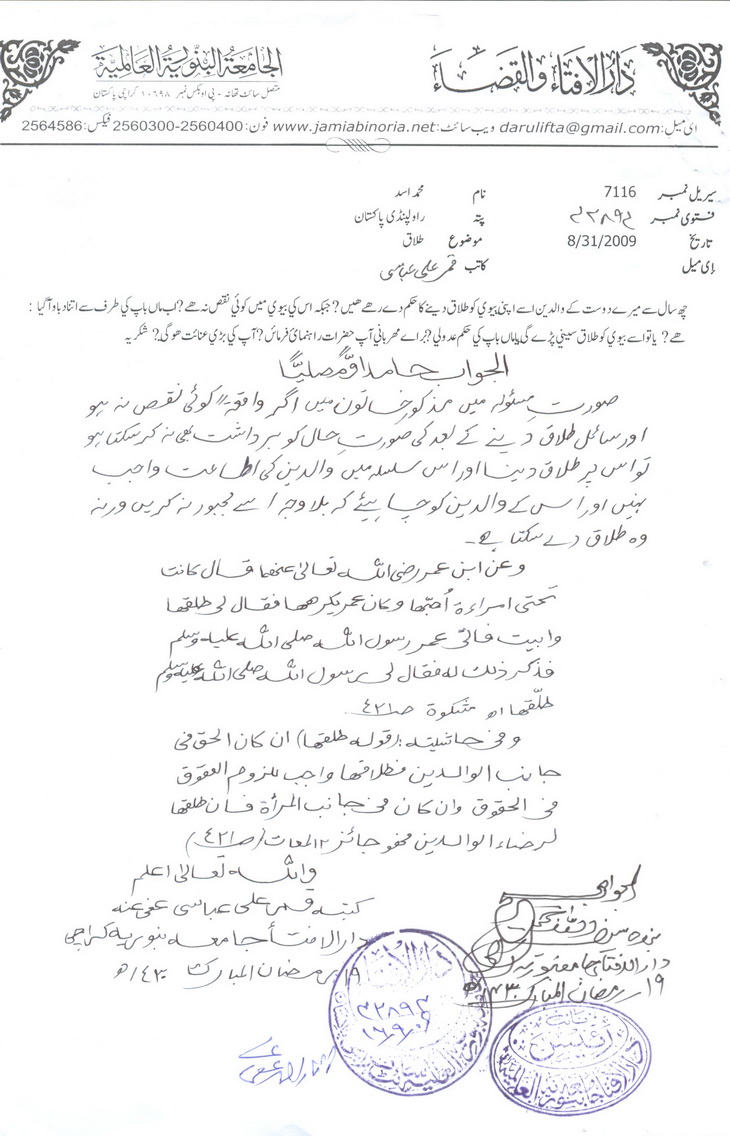 دار الافتاء والقضاء
الجامعة البنورية العالمية
متصل سائٹ تھانہ - پی او بکس نمبر ۱۰۶۹۸ کراچی پاکستان
ای میل: darulifta@gmail.com ویب سائٹ: www.jamiabinoria.net فون: 2560300-2560400 فیکس: 2564586
سیریل نمبر 7116 نام محمد اسد
فتوی نمبر پتہ راولپنڈی پاکستان
تاریخ 8/31/2009 موضوع طلاق
اِی میل کاتب قمر علی عباسی
چھ سال سے میرے دوست کے والدین اسے اپنی بیوی کو طلاق دینے کا حکم دے رہے ھیں? جبکہ اس کی بیوی میں کوئی نقص نہ ھے? اب ماں باپ کی طرف سے اتنا دباو آگیا :
ھے? یا تو اسے بیوی کو طلاق سینی پڑے گی یا ماں باپ کی حکم عدولی? براے مھربانی آپ حضرات راہنمائ فرمائں? آپ کی بڑی عنائت ھوگی? شکریہ
الجواب حامداً ومصلیاً
صورت مسئولہ میں مذکور خاتون میں اگر واقعۃً کوئی نقص نہ ہو
اور سائل طلاق دینے کے بعد کی صورت حال کو برداشت بھی نہ کرسکتا ہو
تو اس پر طلاق دینا اور اس سلسلہ میں والدین کی اطاعت واجب
نہیں اور اس کے والدین کو چاہیئے کہ بلاوجہ اسے مجبور نہ کریں ورنہ
وہ طلاق دے سکتا ہے۔
وعن ابن عمر رضی اللہ تعالیٰ عنھما قال کانت
تحتی امراءۃ اُحبّھا وکان عمر یکرھھا فقال لی طلقھا
وابیت فاتی عمر رسول اللہ صلی اللہ علیہ وسلم
فذکر ذلک لہ فقال لی رسول اللہ صلی اللہ علیہ وسلم
طلّقھا اھ مشکوۃ صـ۴۲۱
وفی حاشیتہ: (قولہ طلقھا) ان کان الحق فی
جانب الوالدین فطلاقھا واجب للزوم العقوق
فی الحقوق وان کان فی جانب المرأۃ فان طلقھا
لرضاء الوالدین فھو جائز ۱۲ لمعات (صـ۴۲۱)
واللہ تعالیٰ اعلم
کتبہ قمر علی عباسی عفی عنہ
دار الافتاء جامعہ بنوریہ کراچی
۱۹ رمضان المبارک ۱۴۳۰ھ
دار الافتاء جامعہ بنوریہ
۱۹ رمضان المبارک ۱۴۳۰ھ